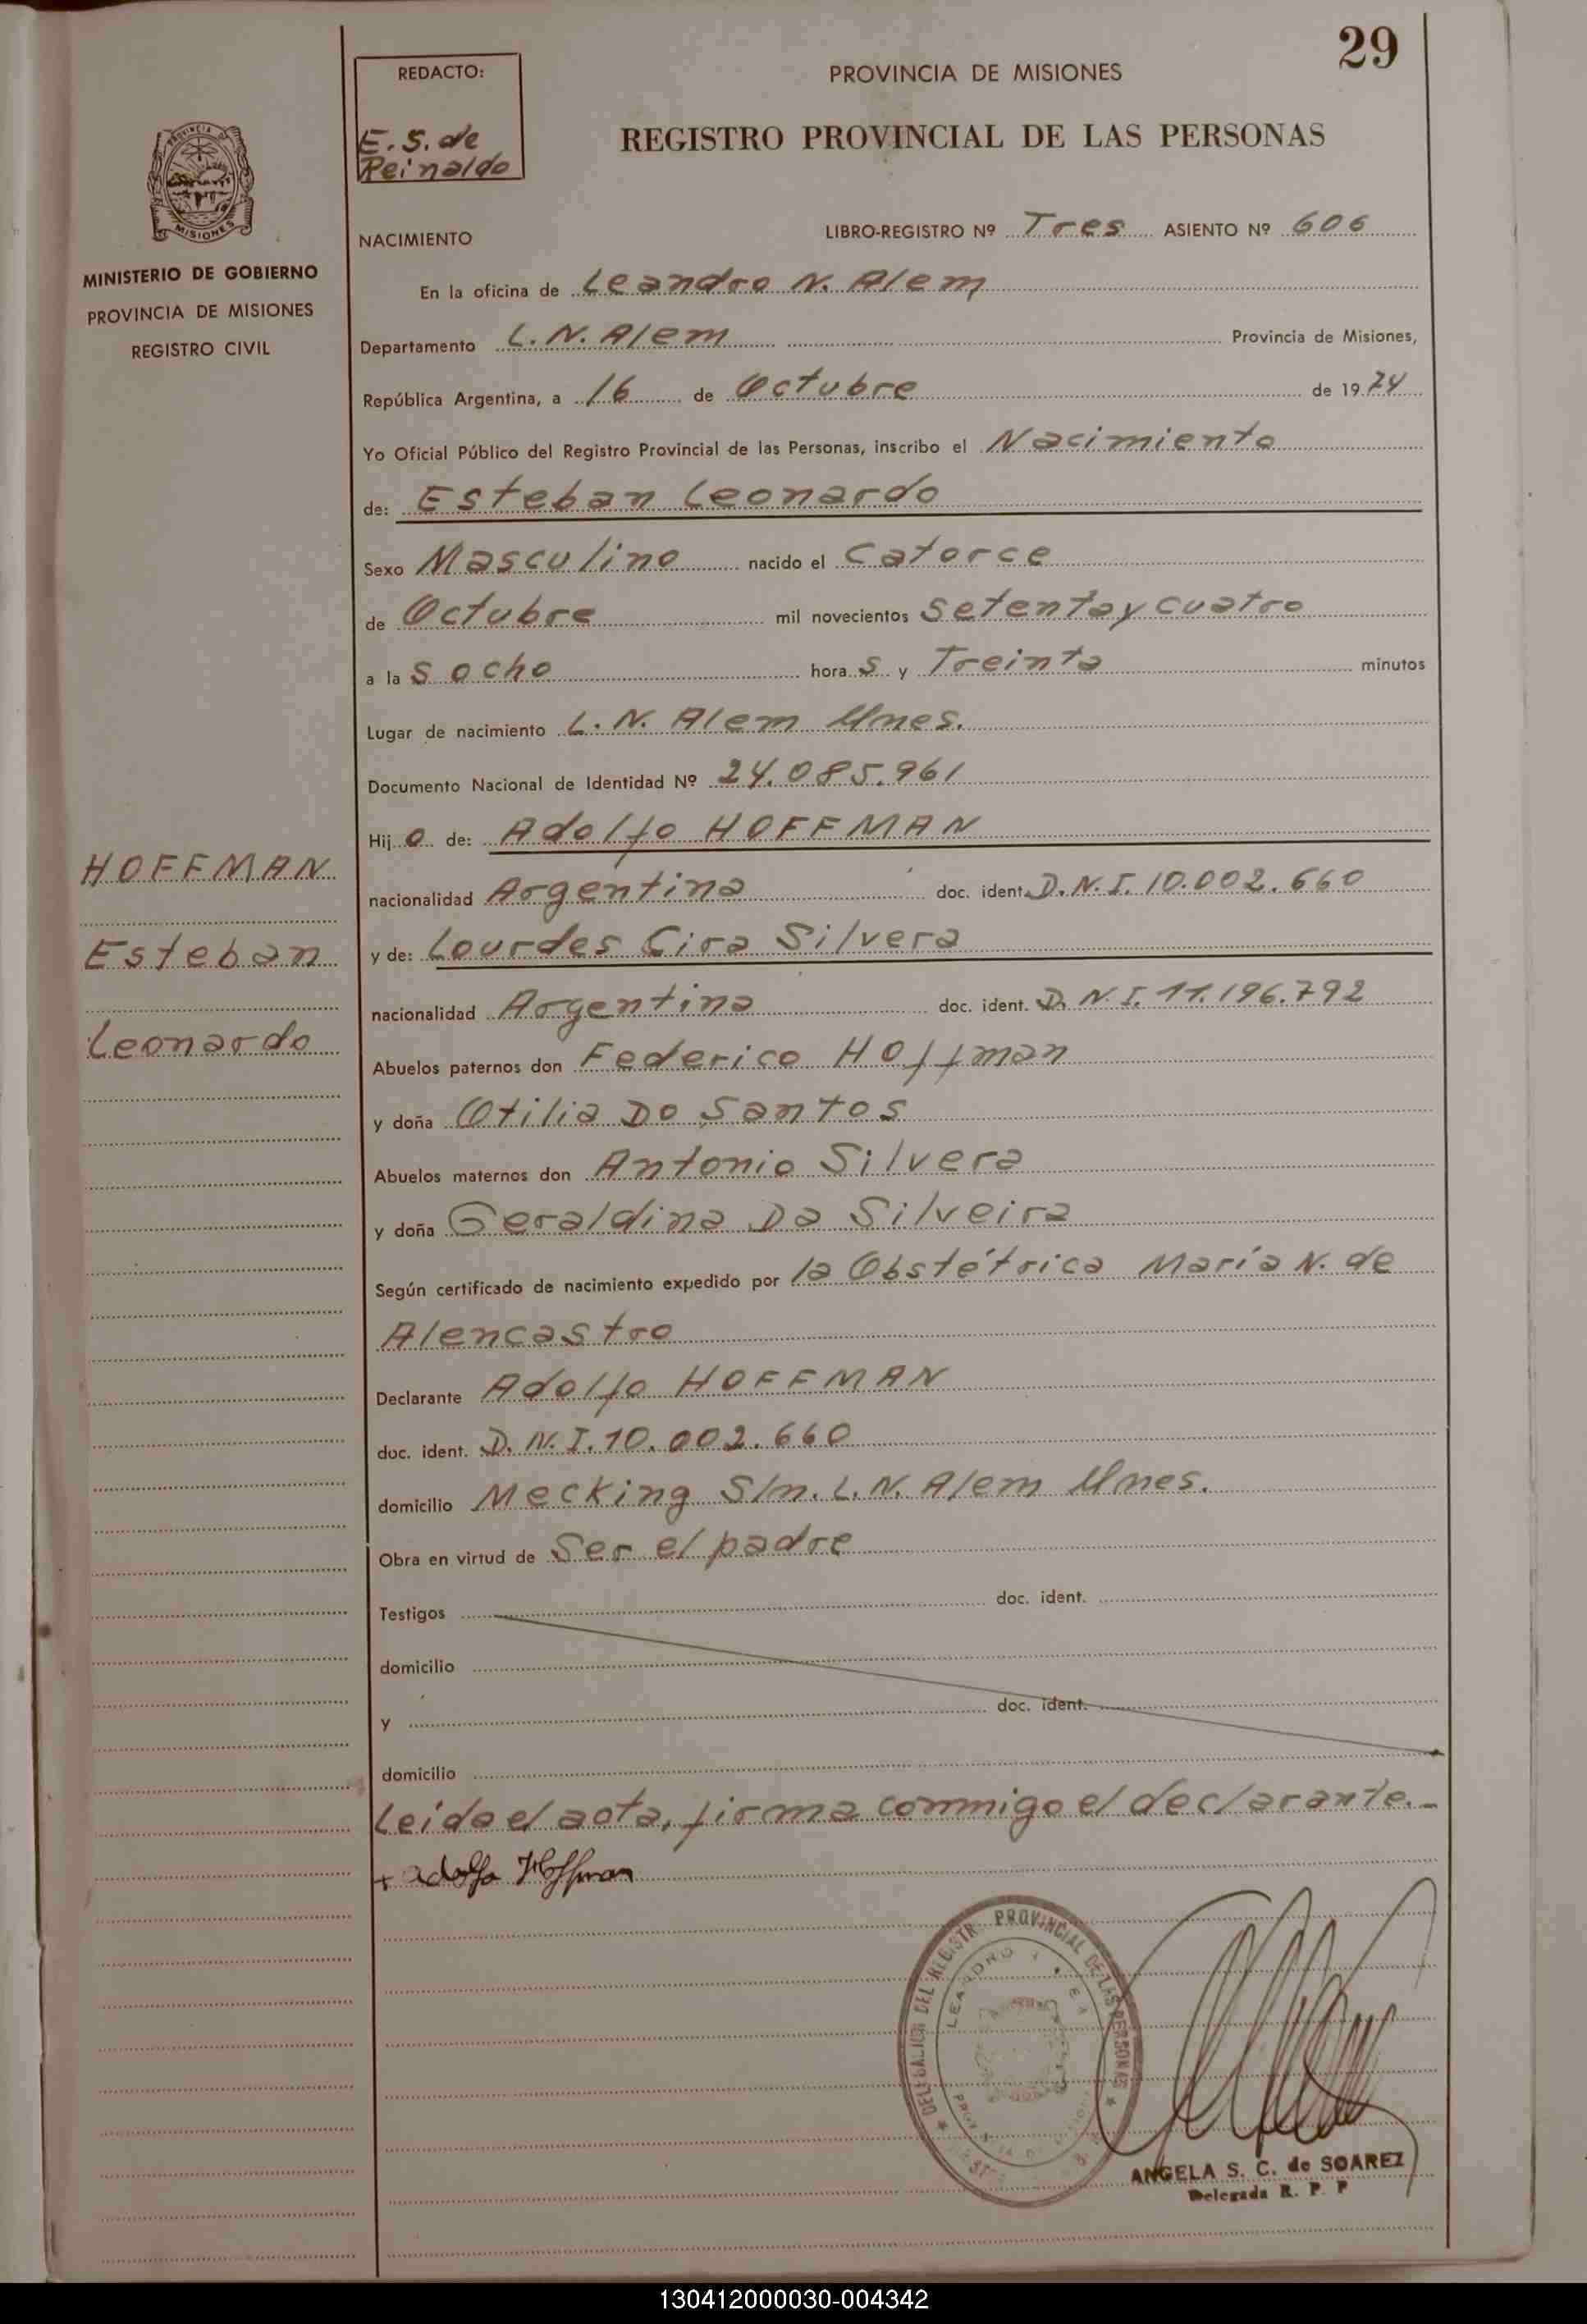 29
REDACTO:
E. S. de
Reinaldo
PROVINCIA DE MISIONES
REGISTRO PROVINCIAL DE LAS PERSONAS
PROVINCIA DE
MISIONES
MINISTERIO DE GOBIERNO
PROVINCIA DE MISIONES
REGISTRO CIVIL
NACIMIENTO
LIBRO-REGISTRO Nº Tres ASIENTO Nº 606
En la oficina de Leandro N. Alem
Departamento L. N. Alem Provincia de Misiones,
República Argentina, a 16 de Octubre de 1974
Yo Oficial Público del Registro Provincial de las Personas, inscribo el Nacimiento
de: Esteban Leonardo
Sexo Masculino nacido el Catorce
de Octubre mil novecientos Setenta y cuatro
a las ocho horas y Treinta minutos
Lugar de nacimiento L. N. Alem Mnes.
Documento Nacional de Identidad Nº 24.085.961
Hijo de: Adolfo HOFFMAN
nacionalidad Argentina doc. ident. D.N.I. 10.002.660
y de: Lourdes Cira Silvera
nacionalidad Argentina doc. ident. D.N.I. 11.196.792
Abuelos paternos don Federico Hoffman
y doña Otilia Do Santos
Abuelos maternos don Antonio Silvera
y doña Geraldina Da Silveira
Según certificado de nacimiento expedido por la Obstétrica María N. de
Alencastro
Declarante Adolfo HOFFMAN
doc. ident. D.N.I. 10.002.660
domicilio Mecking S/n. L. N. Alem Mnes.
Obra en virtud de Ser el padre
Testigos doc. ident.
domicilio
y doc. ident.
domicilio
Leida el acta, firma conmigo el declarante.-
+ adolfo Hoffman
HOFFMAN
Esteban
Leonardo
DEL REGISTR PROVINCIAL DE LAS PERSONAS
LEANDRO
ANGELA S. C. de SOAREZ
Delegada R. P. P
130412000030-004342